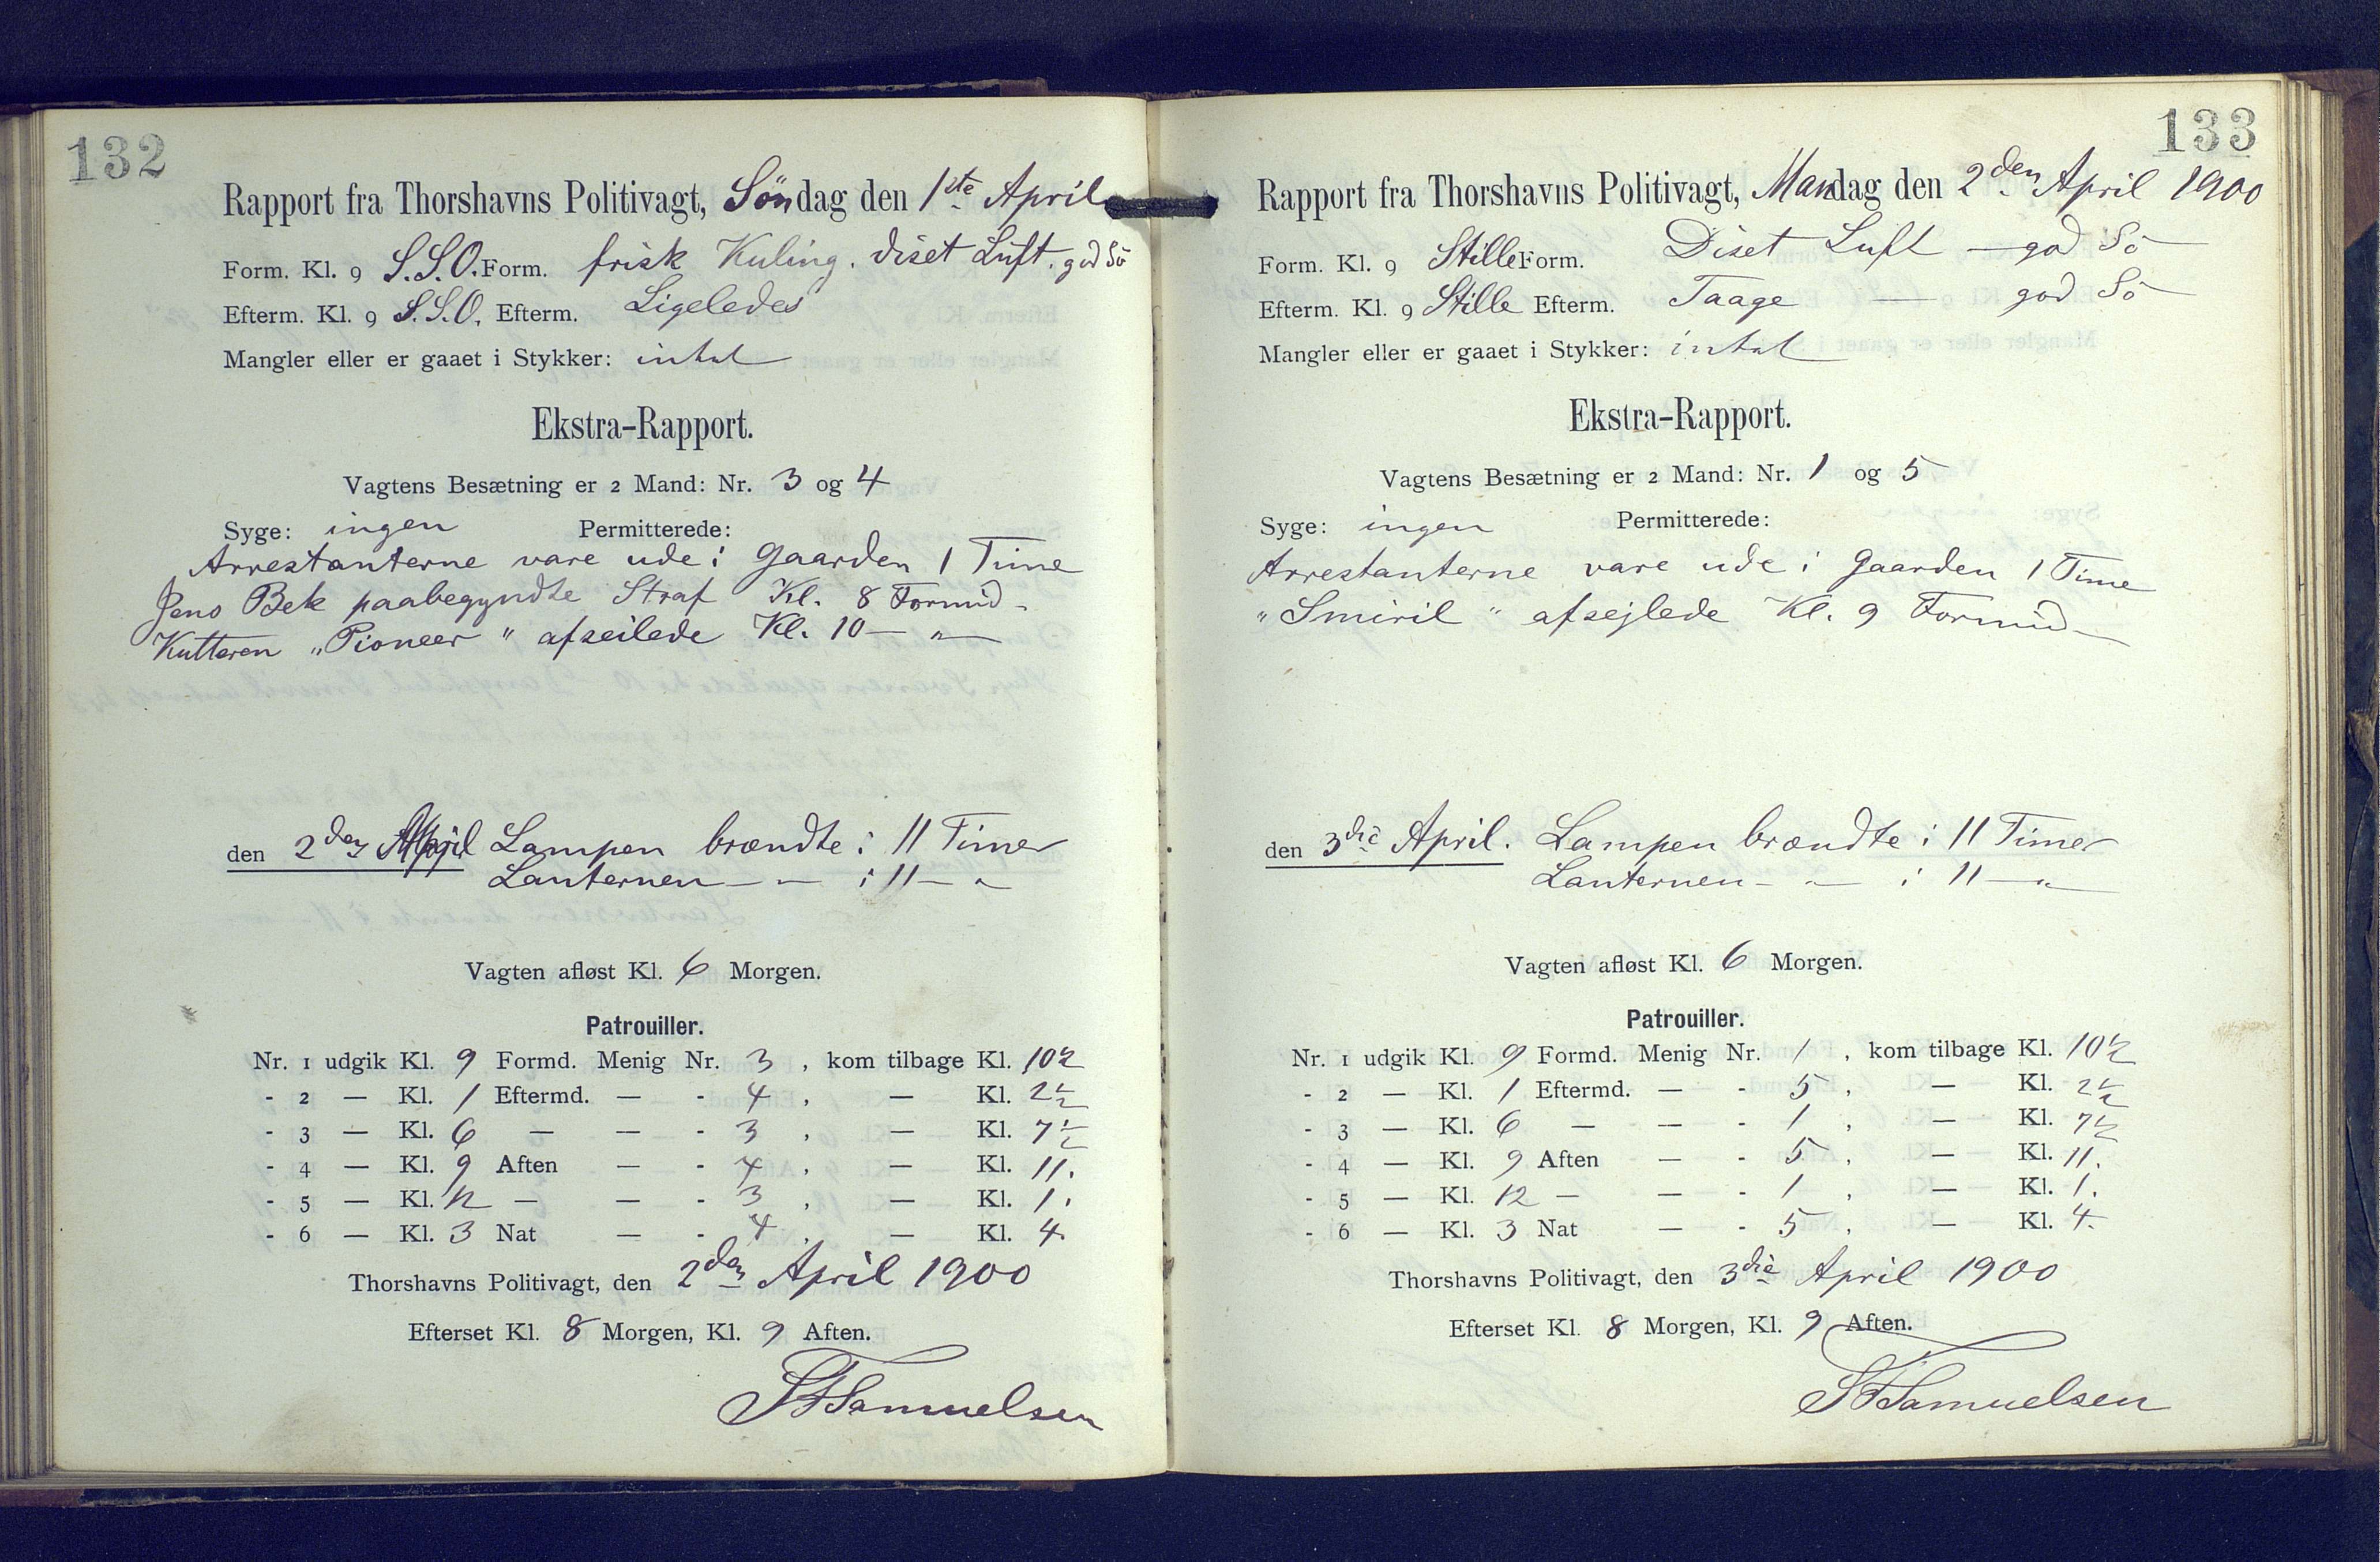 132
Rapport fra Thorshavns Politivagt, Söndag den 1ste April
Form. Kl. 9 S.S.O. Form. frisk Kuling. diset Luft. god Sö
Efterm. Kl. 9 S.S.O. Efterm. Ligeledes
Mangler eller er gaaet i Stykker: intet
Ekstra-Rapport.
Vagtens Besætning er 2 Mand: Nr. 3 og 4
Syge: ingen Permitterede:
Arrestanterne vare ude i Gaarden 1 Time
Jens Bek paabegyndte Straf Kl. 8 Formid-
Kutteren „Pioneer" afseilede Kl. 10 — " —
den 2den April Lampen brændte i 11 Timer
Lanternen — " — i 11 — "
Vagten afløst Kl. 6 Morgen.
Patrouiller.
Nr. 1 udgik Kl. 9 Formd. Menig Nr. 3, kom tilbage Kl. 10½
- 2 — Kl. 1 Eftermd. — - 4, — Kl. 2½
- 3 — Kl. 6 — — - 3, — Kl. 7½
- 4 — Kl. 9 Aften — - 4, — Kl. 11.
- 5 — Kl. 12 — — - 3, — Kl. 1.
- 6 — Kl. 3 Nat — - 4, — Kl. 4.
Thorshavns Politivagt, den 2den April 1900
Efterset Kl. 8 Morgen, Kl. 9 Aften.
SFSamuelsen
133
Rapport fra Thorshavns Politivagt, Mandag den 2den April 1900
Form. Kl. 9 Stille Form. Diset Luft — god Sö
Efterm. Kl. 9 Stille Efterm. Taage — god Sö
Mangler eller er gaaet i Stykker: intet
Ekstra-Rapport.
Vagtens Besætning er 2 Mand: Nr. 1 og 5
Syge: ingen Permitterede:
Arrestanterne vare ude i Gaarden 1 Time
"Smiril" afsejlede Kl. 9 Formid-
den 3die April. Lampen brændte i 11 Timer
Lanternen - " — i 11 — "
Vagten afløst Kl. 6 Morgen.
Patrouiller.
Nr. 1 udgik Kl. 9 Formd. Menig Nr. 1, kom tilbage Kl. 10½
- 2 — Kl. 1 Eftermd. — - 5, — Kl. 2½
- 3 — Kl. 6 — — - 1, — Kl. 7½
- 4 — Kl. 9 Aften — - 5, — Kl. 11.
- 5 — Kl. 12 — — - 1, — Kl. 1.
- 6 — Kl. 3 Nat — - 5, — Kl. 4.
Thorshavns Politivagt, den 3die April 1900
Efterset Kl. 8 Morgen, Kl. 9 Aften.
SFSamuelsen